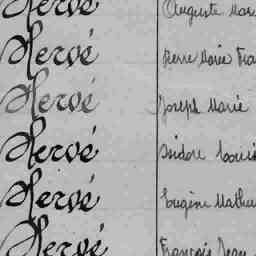 Hervé Auguste Mar
Hervé Pierre Marie Fra
Hervé Joseph Marie
Hervé Isidore Louis
Hervé Eugène Mathu
Hervé François Jean